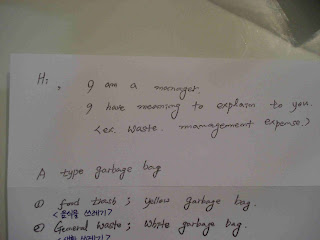 Hi,
I am a manager.
I have meaning to explain to you.
<ex. waste. management expense.>
A type garbage bag
① food trash ; yellow garbage bag.
<음식물 쓰레기>
② General waste ; white garbage bag.
쓰레기>